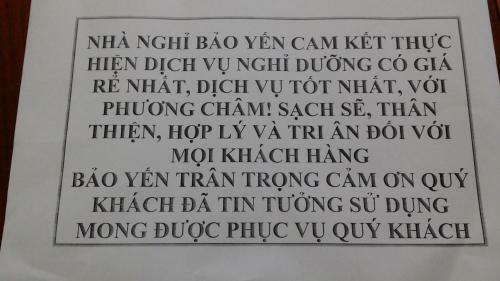 NHÀ NGHỈ BẢO YẾN CAM KẾT THỰC
HIỆN DỊCH VỤ NGHỈ DƯỠNG CÓ GIÁ
RẺ NHẤT, DỊCH VỤ TỐT NHẤT, VỚI
PHƯƠNG CHÂM! SẠCH SẼ, THÂN
THIỆN, HỢP LÝ VÀ TRI ÂN ĐỐI VỚI
MỌI KHÁCH HÀNG
BẢO YẾN TRÂN TRỌNG CẢM ƠN QUÝ
KHÁCH ĐÃ TIN TƯỞNG SỬ DỤNG
MONG ĐƯỢC PHỤC VỤ QUÝ KHÁCH